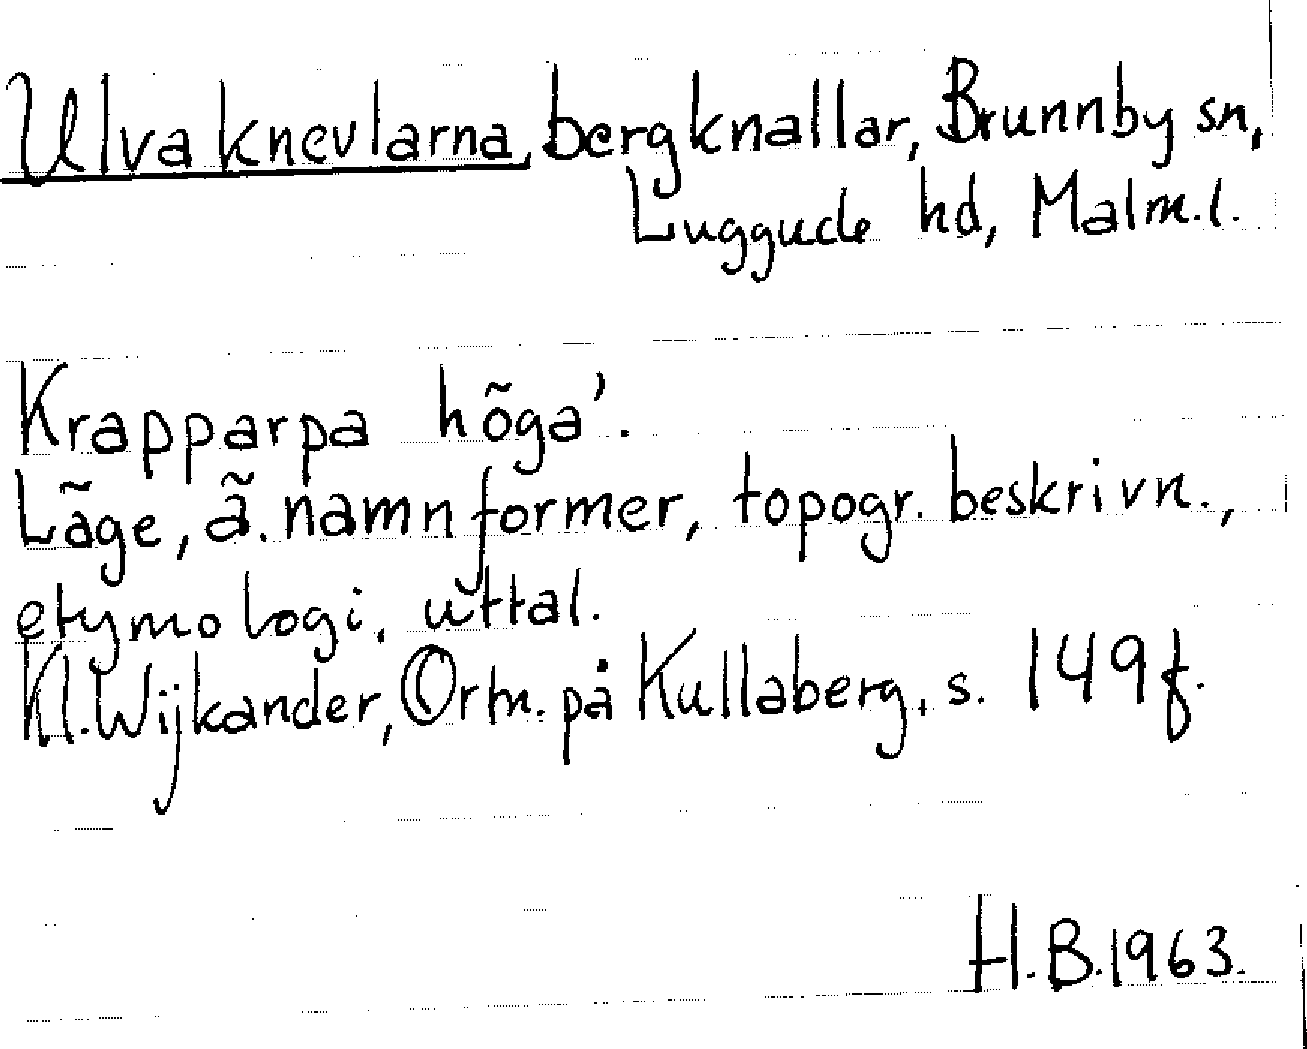 Ulva knevlarna, bergknallar, Brunnby sn,
Luggude hd, Malm.l.
Krapparpa hõga'.
Lãge, ã. namnformer, topogr. beskrivn.,
etymologi, uttal.
Kl. Wijkander, Ortn. på Kullaberg, s. 149 f.
H.B. 1963.